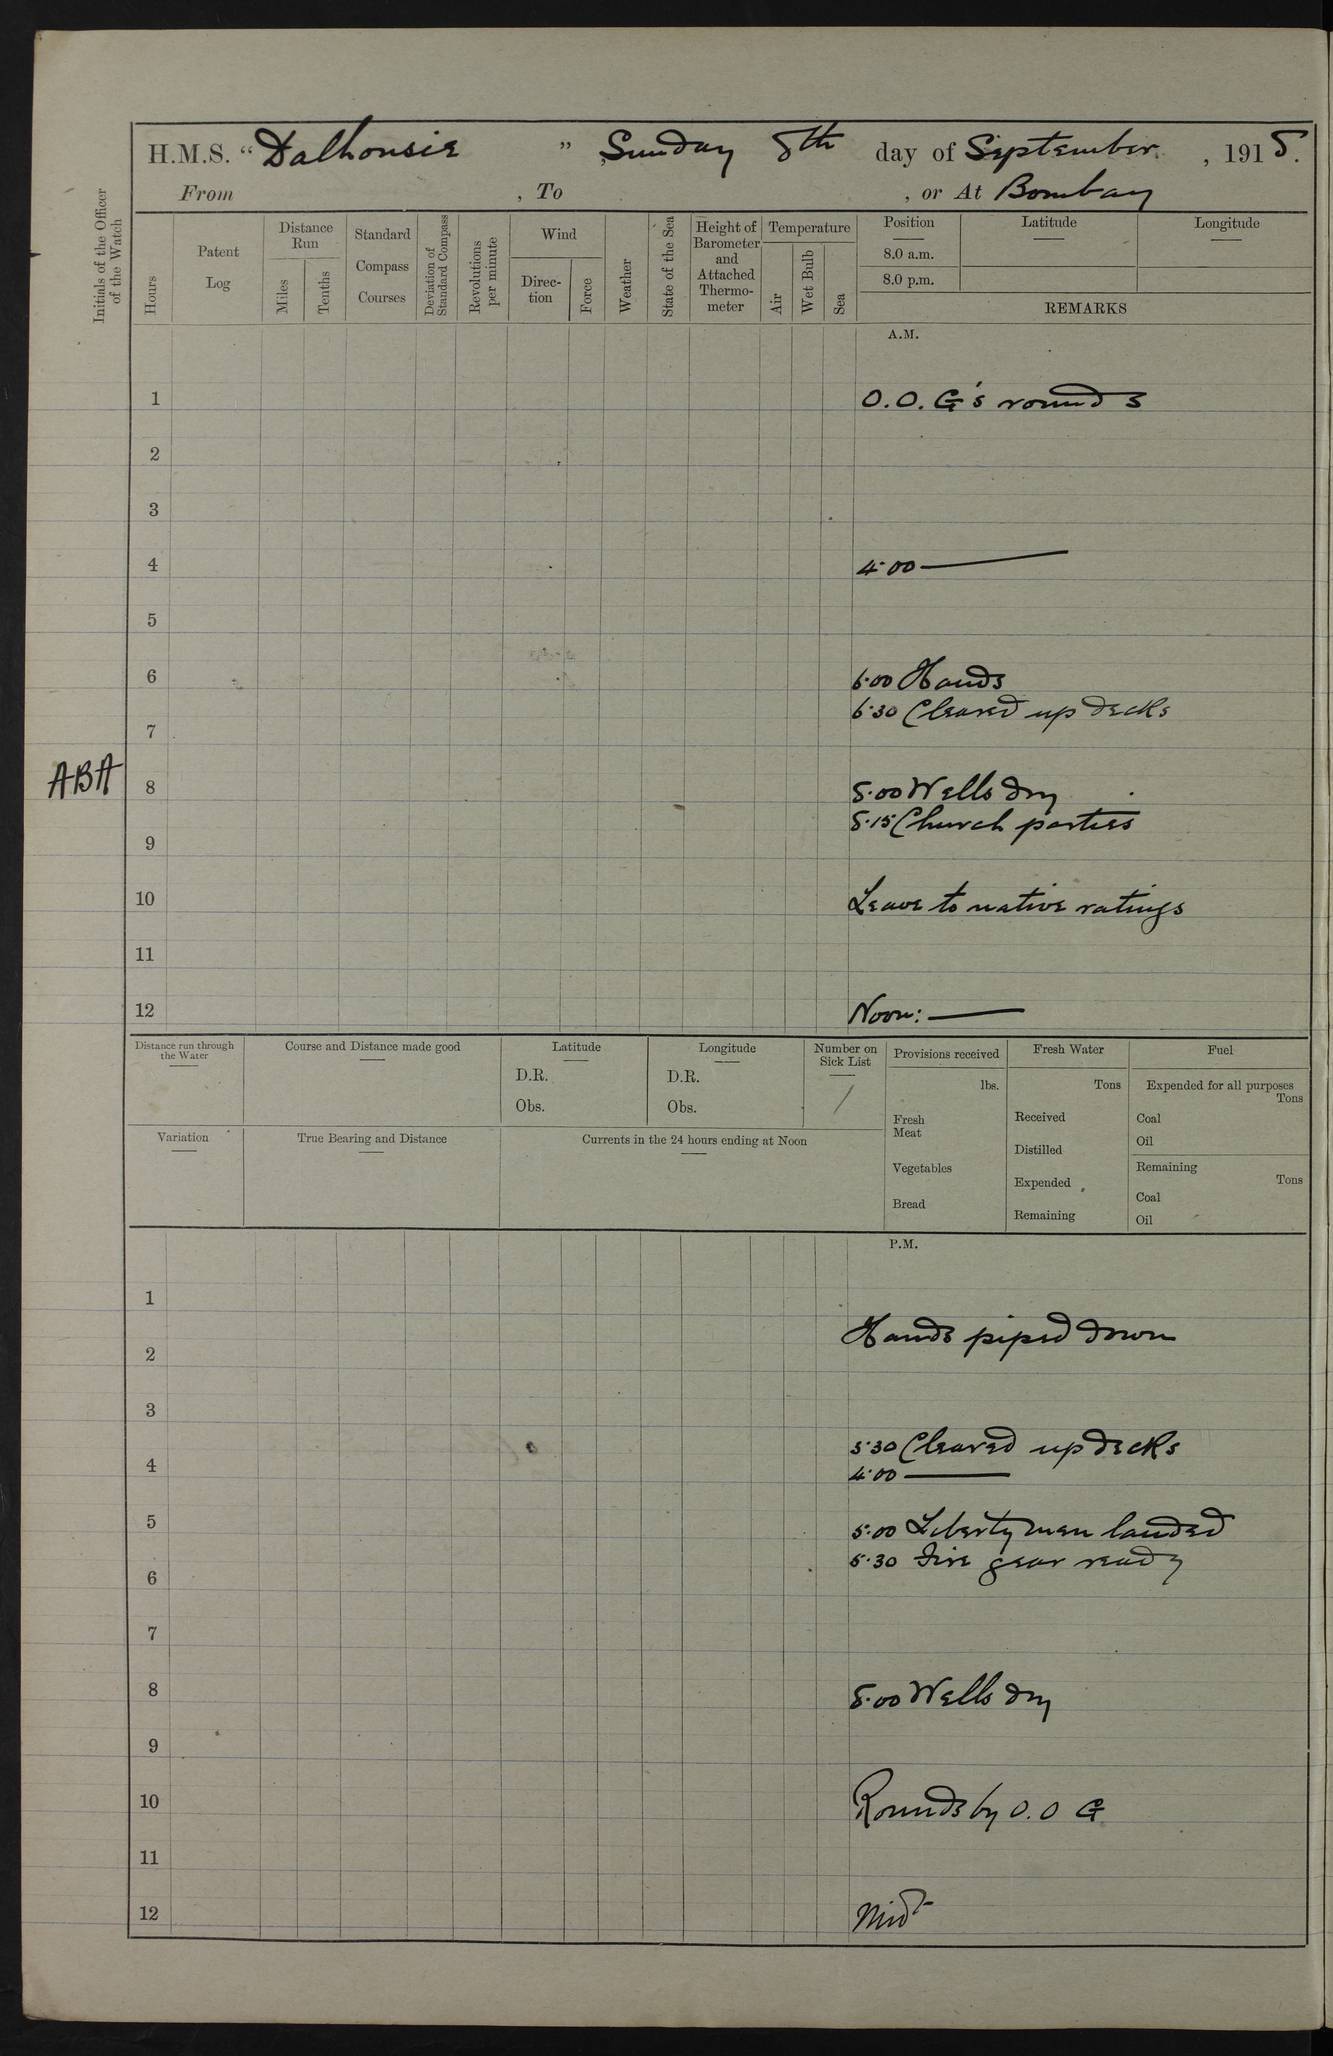 H.M.S. “Dalhousie ”, Sunday 8th day of September, 1918.
From , To , or At Bombay
Initials of the Officer of the Watch
Hours
Patent Log
Distance Run
Miles
Tenths
Standard Compass Courses
Deviation of Standard Compass
Revolutions per minute
Wind
Direction
Force
Weather
State of the Sea
Height of Barometer and Attached Thermometer
Temperature
Air
Wet Bulb
Sea
Position
8.0 a.m.
8.0 p.m.
Latitude
Longitude
REMARKS
A.M.
1 O.O.G's rounds
2
3
4 4·00 —
5
6 6·00 Hands
6·30 Cleared up decks
7
ABA 8 8·00 Wells dry
8·15 Church parties
9
10 Leave to native ratings
11
12 Noon: —
Distance run through the Water
Course and Distance made good
Latitude
D.R.
Obs.
Longitude
D.R.
Obs.
Number on Sick List
/
Provisions received
lbs.
Fresh Meat
Vegetables
Bread
Fresh Water
Tons
Received
Distilled
Expended
Remaining
Fuel
Expended for all purposes
Tons
Coal
Oil
Remaining
Tons
Coal
Oil
Variation
True Bearing and Distance
Currents in the 24 hours ending at Noon
P.M.
1
Hands piped down
2
3
3·30 Cleared up decks
4 4·00 —
5 5·00 Liberty men landed
5·30 Fire gear ready
6
7
8 8·00 Wells dry
9
10 Rounds by O.O G
11
12 Midt